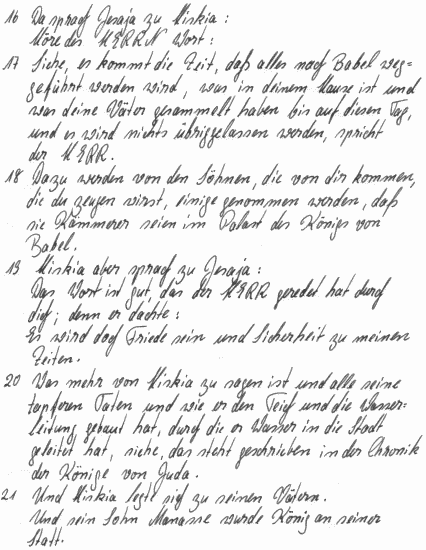 16 Da sprach Jesaja zu Hiskia:
Höre des HERRN Wort:
17 Siehe, es kommt die Zeit, daß alles nach Babel weg=
geführt werden wird, was in deinem Hause ist und
was deine Väter gesammelt haben bis auf diesen Tag,
und es wird nichts übriggelassen werden, spricht
der HERR.
18 Dazu werden von den Söhnen, die von dir kommen,
die du zeugen wirst, einige genommen werden, daß
sie Kämmerer seien im Palast des Königs von
Babel.
19 Hiskia aber sprach zu Jesaja:
Das Wort ist gut, das der HERR geredet hat durch
dich; denn er dachte:
Es wird doch Friede sein und Sicherheit zu meinen
Zeiten.
20 Was mehr von Hiskia zu sagen ist und alle seine
tapferen Taten und wie er den Teich und die Wasser=
leitung gebaut hat, durch die er Wasser in die Stadt
geleitet hat, siehe, das steht geschrieben in der Chronik
der Könige von Juda.
21 Und Hiskia legte sich zu seinen Vätern.
Und sein Sohn Manasse wurde König an seiner
Statt.